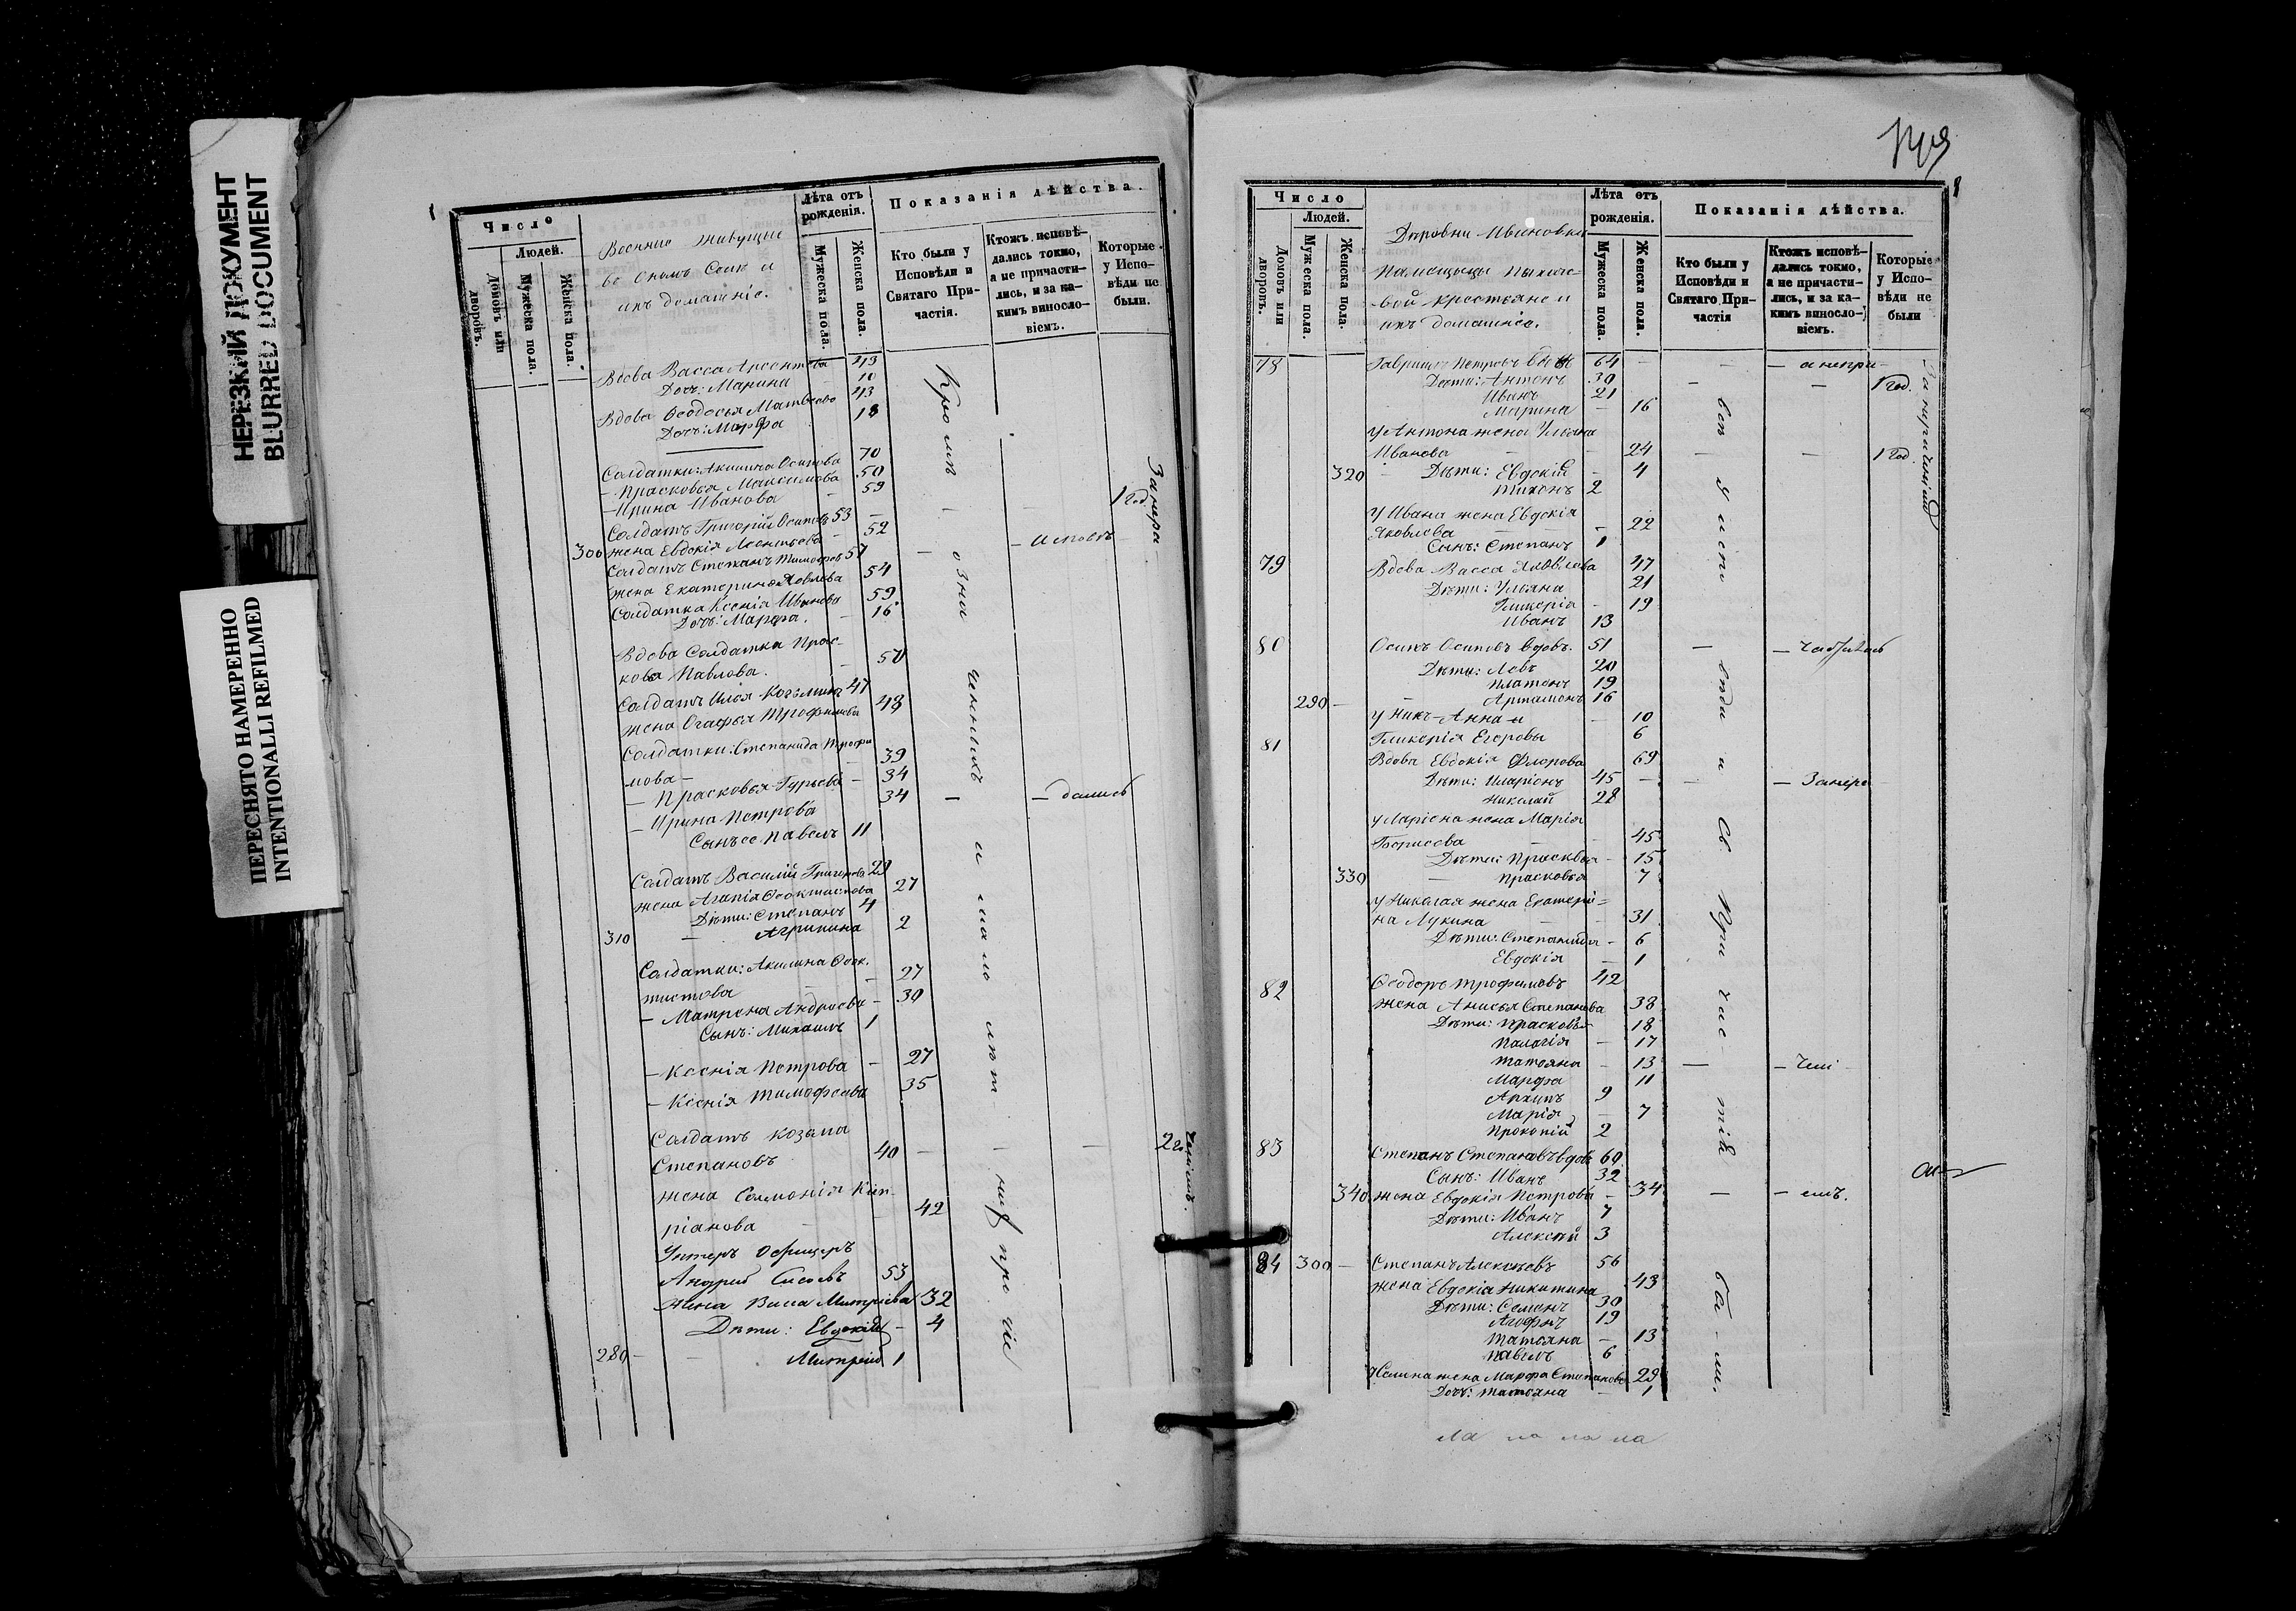 НЕРЕЗКИЙ ДОКУМЕНТ
BLURRED DOCUMENT
ПЕРЕСНЯТО НАМЕРЕННО
INTENTIONALLI REFILMED
Число
Людей.
Домовъ или дворовъ.
Мужеска пола.
Женска пола.
Военние живущие
во ономъ Селѣ и
ихъ домашніе.
Лѣта отъ рожденія.
Мужеска пола.
Женска пола.
Показанія дѣйства.
Кто были у Исповѣди и Святаго Причастія.
Ктожъ исповѣдались токмо, а не причастились, и за какимъ винословіемъ.
Которые у Исповѣди не были.
Вдова Васса Арсентьева 43
Дочь: Марина – 10
Вдова Ѳеодосья Матвеева 43
Дочь: Марфа 18
Солдатки: Акилина Осипова 70
– Прасковья Максимова 50
– Ирина Иванова – 59
Солдатъ Григорій Осиповъ 53 – – – 1 год
300 жена Евдокія Леонтьева – 52
Солдатъ Степанъ Тимофеевъ 57 – – исповѣ
жена Екатерина Яковлева 54
Солдатка Ксенія Иванова 59
Дочь: Марфа. – 16
Вдова Солдатка Прас-
ковья Павлова. – 50
Солдатъ Илія Козьминъ 47
жена Агафья Трофимова 48
Солдатки: Степанида Трофи
мова – – 39
– Прасковья Гурьева – 34
– Ирина Петрова 34 – – дались
Сынъ ее Павелъ 11
Солдатъ Василій Григорьевъ 29
жена Агапія Ѳеоктистова 27
Дѣти: Степанъ 4
310 – Агрипина 2
Солдатки: Акилина Ѳеок-
тистова – – 27
– Матрена Андреева – 30
Сынъ: Михаилъ 1
– Ксенія Петрова – 27
– Ксенія Тимофеева 35
Солдатъ Козьма
Степановъ 40 – – –
жена Соломонія Кип-
ріанова – – 42
Унтеръ Офицеръ
Андрей 53
Жена Митріева 32
Дѣти: Евдокій – 4
280 – – Митрей 1
Кромѣ означинныхъ и мало лѣт ниѣ прочіи
Число
Людей.
Домовъ или дворовъ.
Мужеска пола.
Женска пола.
Деревни Ивановки
помещицы
крестьяне и
ихъ домашніе.
Лѣта отъ рожденія.
Мужеска пола.
Женска пола.
Показанія дѣйства.
Кто были у Исповѣди и Святаго Причастія
Ктожъ исповѣдались токмо, а не причастились, и за какимъ винословіемъ.
Которые у Исповѣди не были
78 Гавриилъ Петровъ вдовъ 64 – – – а непри-
Дѣти: Антонъ 30 – – 1 год.
Иванъ 21
Марина – 16
у Антона жена Ульяна
Иванова – – 24 – – 1 год.
320 – Дѣти: Евдокія – 4
Тихонъ 2
у Ивана жена Евдокія
Яковлева – – 22
Сынъ: Степанъ 1
79 Вдова Васса Яковлева 47
Дѣти: Ульяна 21
Гликерія – 19
Иванъ 13
80 Осипъ Осиповъ вдовъ. 51 – –
Дѣти: Левъ 20
Платонъ 19
290 – – Артамонъ 16
у Них – Анна и – 10
Гликерія Егоровы 6
81 Вдова Евдокія Флорова 69
Дѣти: Иларіонъ 45 – – –
Николай 28
у Ларіона жена Марія
Борисова – – 45
Дѣти: Прасковья – 15
330 – Прасковья 7
у Николая жена Екатери-
на Лукина – – 31
Дѣти: Степанида – 6
Евдокія – 1
82 Ѳеодоръ Трофимовъ 42
жена Анисья Степанова 38
Дѣти: Прасковья 18
Палагія – 17
Татьяна – 13 – –
Марфа 11
Архипъ 9
Марія – 7
Прокопій 2
83 Степанъ Степановъ вдовъ 60
Сынъ: Иванъ 32
340 жена Евдокія Петрова – 34 – – емъ.
Дѣти: Иванъ 7
Алексѣй 3
84 300 – Степанъ Алексѣевъ 56
жена Евдокія Никитина 43
Дѣти: Семенъ 30
19
Татьяна – 13
Павелъ 6
жена Марфа Степанова 29
Дочь: Татьяна – 1
всѣ у испо вѣди и Св При час тія бы-ли.
ла ла ла ла